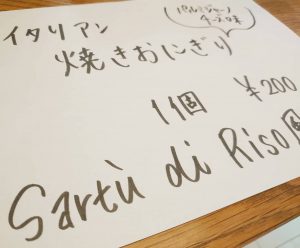 イタリアン
焼きおにぎり
パルミジャーノ
チーズ味
1個 ¥200
Sartù di Riso風